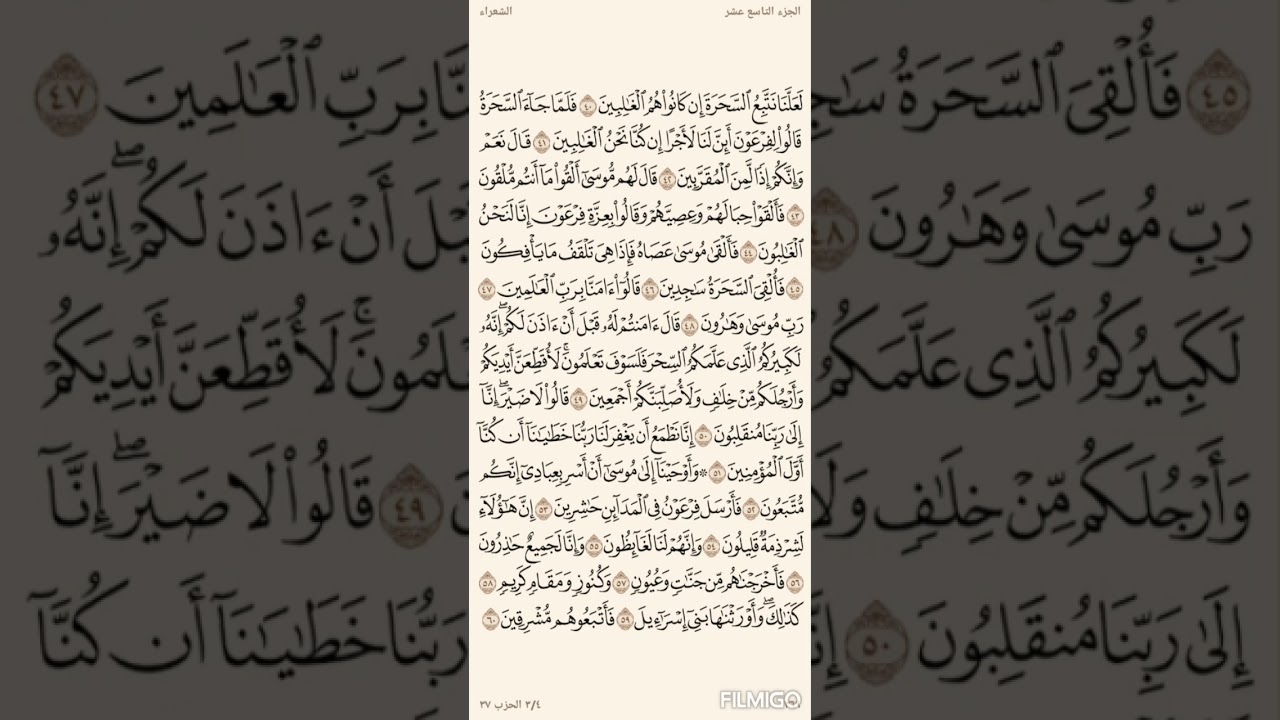 الجزء التاسع عشر
الشعراء
لَعَلَّنَا نَتَّبِعُ ٱلسَّحَرَةَ إِن كَانُوا۟ هُمُ ٱلْغَـٰلِبِينَ ٤٠ فَلَمَّا جَآءَ ٱلسَّحَرَةُ
قَالُوا۟ لِفِرْعَوْنَ أَئِنَّ لَنَا لَأَجْرًا إِن كُنَّا نَحْنُ ٱلْغَـٰلِبِينَ ٤١ قَالَ نَعَمْ
وَإِنَّكُمْ إِذًا لَّمِنَ ٱلْمُقَرَّبِينَ ٤٢ قَالَ لَهُم مُّوسَىٰٓ أَلْقُوا۟ مَآ أَنتُم مُّلْقُونَ
٤٣ فَأَلْقَوْا۟ حِبَالَهُمْ وَعِصِيَّهُمْ وَقَالُوا۟ بِعِزَّةِ فِرْعَوْنَ إِنَّا لَنَحْنُ
ٱلْغَـٰلِبُونَ ٤٤ فَأَلْقَىٰ مُوسَىٰ عَصَاهُ فَإِذَا هِىَ تَلْقَفُ مَا يَأْفِكُونَ
٤٥ فَأُلْقِىَ ٱلسَّحَرَةُ سَـٰجِدِينَ ٤٦ قَالُوٓا۟ ءَامَنَّا بِرَبِّ ٱلْعَـٰلَمِينَ ٤٧
رَبِّ مُوسَىٰ وَهَـٰرُونَ ٤٨ قَالَ ءَامَنتُمْ لَهُۥ قَبْلَ أَنْ ءَاذَنَ لَكُمْ ۖ إِنَّهُۥ
لَكَبِيرُكُمُ ٱلَّذِى عَلَّمَكُمُ ٱلسِّحْرَ فَلَسَوْفَ تَعْلَمُونَ ۚ لَأُقَطِّعَنَّ أَيْدِيَكُمْ
وَأَرْجُلَكُم مِّنْ خِلَـٰفٍ وَلَأُصَلِّبَنَّكُمْ أَجْمَعِينَ ٤٩ قَالُوا۟ لَا ضَيْرَ ۖ إِنَّآ
إِلَىٰ رَبِّنَا مُنقَلِبُونَ ٥٠ إِنَّا نَطْمَعُ أَن يَغْفِرَ لَنَا رَبُّنَا خَطَـٰيَـٰنَآ أَن كُنَّآ
أَوَّلَ ٱلْمُؤْمِنِينَ ٥١ ۞ وَأَوْحَيْنَآ إِلَىٰ مُوسَىٰٓ أَنْ أَسْرِ بِعِبَادِىٓ إِنَّكُم
مُّتَّبَعُونَ ٥٢ فَأَرْسَلَ فِرْعَوْنُ فِى ٱلْمَدَآئِنِ حَـٰشِرِينَ ٥٣ إِنَّ هَـٰٓؤُلَآءِ
لَشِرْذِمَةٌ قَلِيلُونَ ٥٤ وَإِنَّهُمْ لَنَا لَغَآئِظُونَ ٥٥ وَإِنَّا لَجَمِيعٌ حَـٰذِرُونَ
٥٦ فَأَخْرَجْنَـٰهُم مِّن جَنَّـٰتٍ وَعُيُونٍ ٥٧ وَكُنُوزٍ وَمَقَامٍ كَرِيمٍ ٥٨
كَذَٰلِكَ ۖ وَأَوْرَثْنَـٰهَا بَنِىٓ إِسْرَٰٓءِيلَ ٥٩ فَأَتْبَعُوهُم مُّشْرِقِينَ ٦٠
٣/٤ الحزب ٣٧
FILMIGO